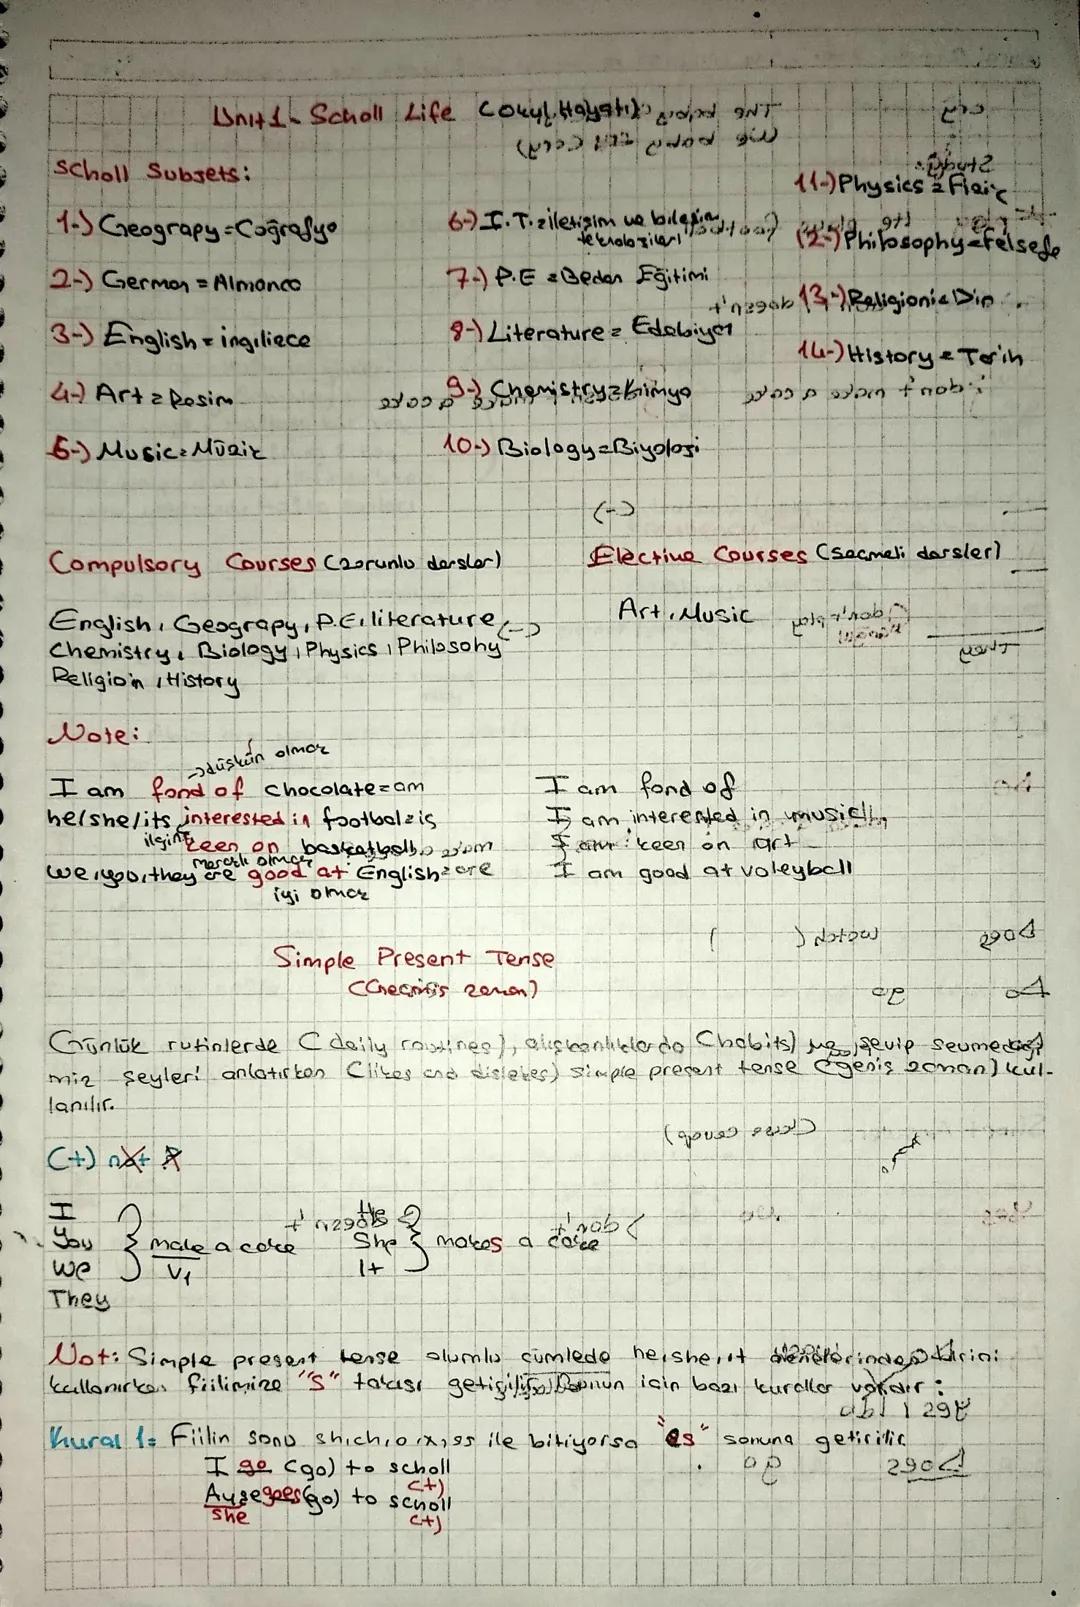 Unit 1- Scholl Life (Okul Hayatı)
Scholl Subsets:
1-) Geograpy = Coğrafya
2-) German = Almanca
3-) English = ingiliece
4-) Art = Resim
5-) Music = Müzik
6-) I.T. = iletişim ve bilişim
teknolojileri
7-) P.E = Beden Eğitimi
8-) Literature = Edebiyat
9-) Chemistry = kimya
10-) Biology = Biyoloji
11-) Physics = Fizik
12-) Philosophy = felsefe
13-) Religion = Din
14-) History = Tarih
Compulsory Courses (zorunlu dersler)
English, Geograpy, P.E, literature
Chemistry, Biology, Physics, Philosohy
Religion, History
Elective Courses (seçmeli dersler)
Art, Music
Note:
→ düşkün olmak
I am fond of chocolate = am
he/she/its interested in football = is
keen on basketball
meraklı olmak
we, you, they are good at English = are
iyi olmak
I am fond of
I am interested in music
I am keen on art
I am good at voleyball
Simple Present Tense
(Geçmiş zaman)
Günlük rutinlerde (daily routines), alışkanlıklarda (habits) ve sevip sevmediği
miz şeyleri anlatırken (likes and dislekes) simple present tense (geniş zaman) kul-
lanılır.
(+) not ?
I
You
We
They
make a cake
V1
He
She
It
makes a cake
Not: Simple present tense olumlu cümlede he, she, it birini
kullanırken fiilimize "s" takısı getirilir. Bunun için bazı kurallar vardır:
Kural 1: Fiilin sonu sh, ch, o, x, ss ile bitiyorsa "es" sonuna getirilir
I go (go) to scholl
(+)
Ayşe goes (go) to scholl
she
(+)